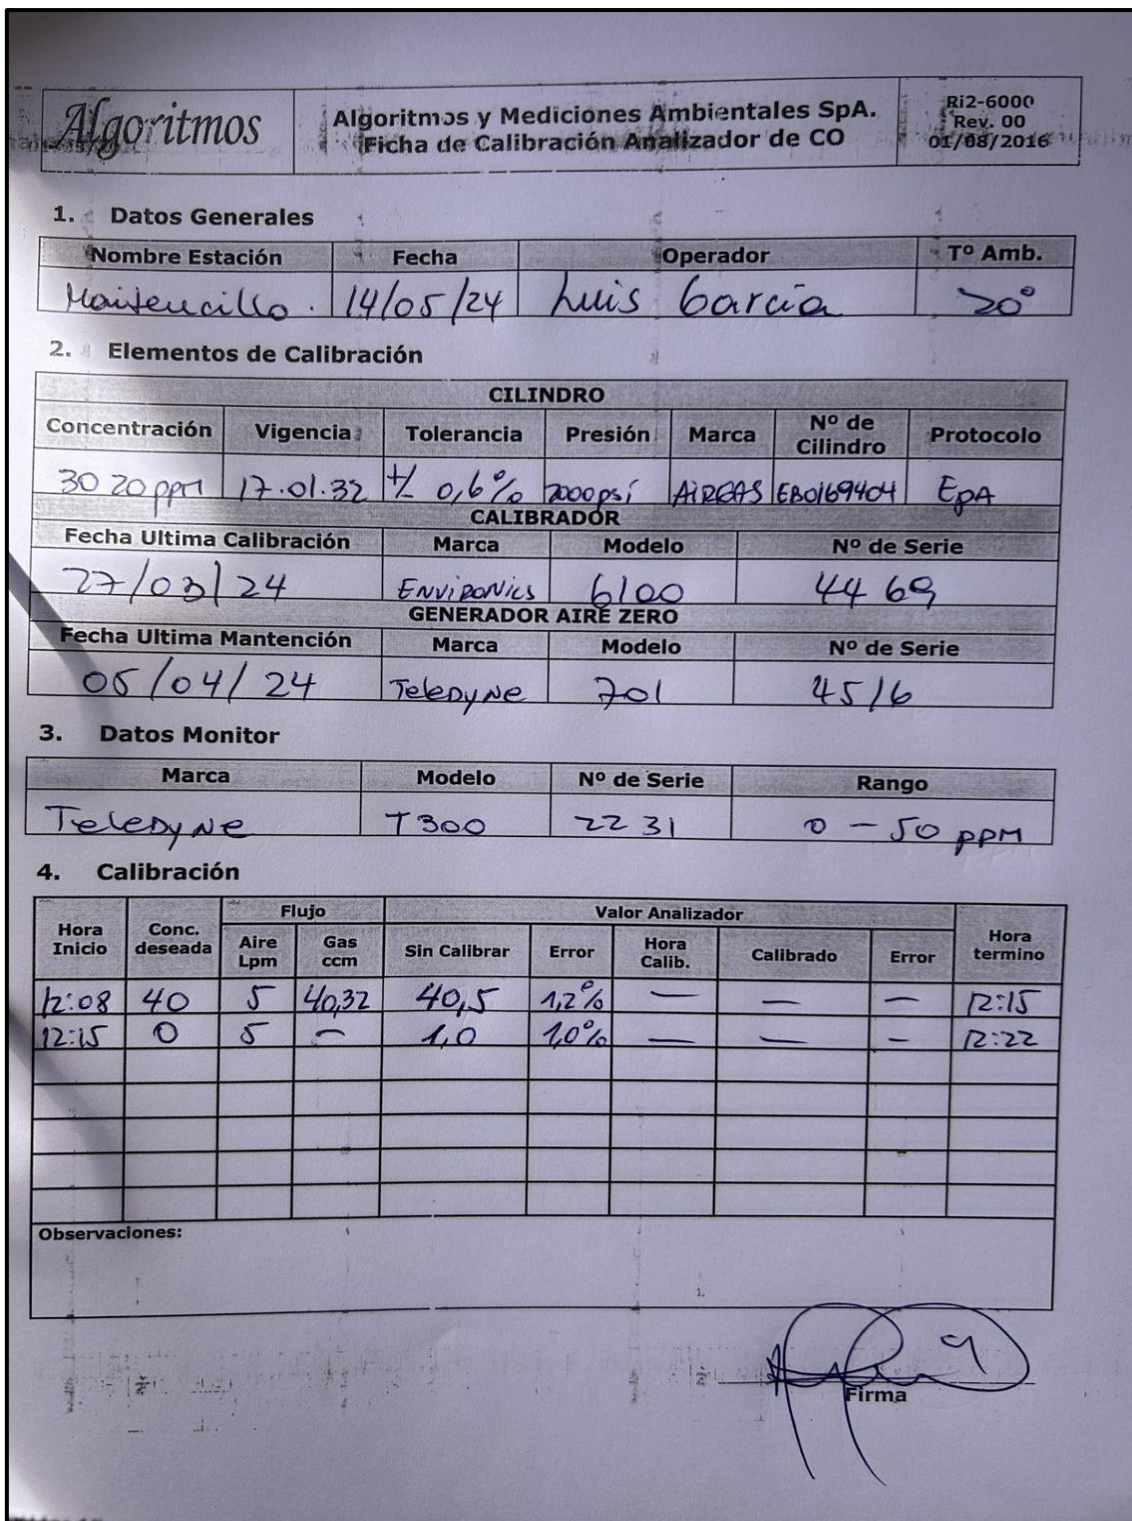 Algoritmos
Algoritmos y Mediciones Ambientales SpA.
Ficha de Calibración Analizador de CO
Ri2-6000
Rev. 00
01/08/2016
1. Datos Generales
Nombre Estación Fecha Operador Tº Amb.
Maitencillo. 14/05/24 Luis García 20°
2. Elementos de Calibración
CILINDRO
Concentración Vigencia Tolerancia Presión Marca Nº de Cilindro Protocolo
3020 ppm 17.01.32 +/- 0,6% 2000psi AIRGAS EB0169404 EPA
CALIBRADOR
Fecha Ultima Calibración Marca Modelo Nº de Serie
27/03/24 ENVIRONICS 6100 4469
GENERADOR AIRE ZERO
Fecha Ultima Mantención Marca Modelo Nº de Serie
05/04/24 Teledyne 701 4516
3. Datos Monitor
Marca Modelo Nº de Serie Rango
Teledyne T300 2231 0 - 50 ppm
4. Calibración
Hora Inicio Conc. deseada Flujo Valor Analizador Hora termino
Aire Lpm Gas ccm Sin Calibrar Error Hora Calib. Calibrado Error
12:08 40 5 40,32 40,5 1,2% — — — 12:15
12:15 0 5 — 1,0 1,0% — — — 12:22
Observaciones:
Firma